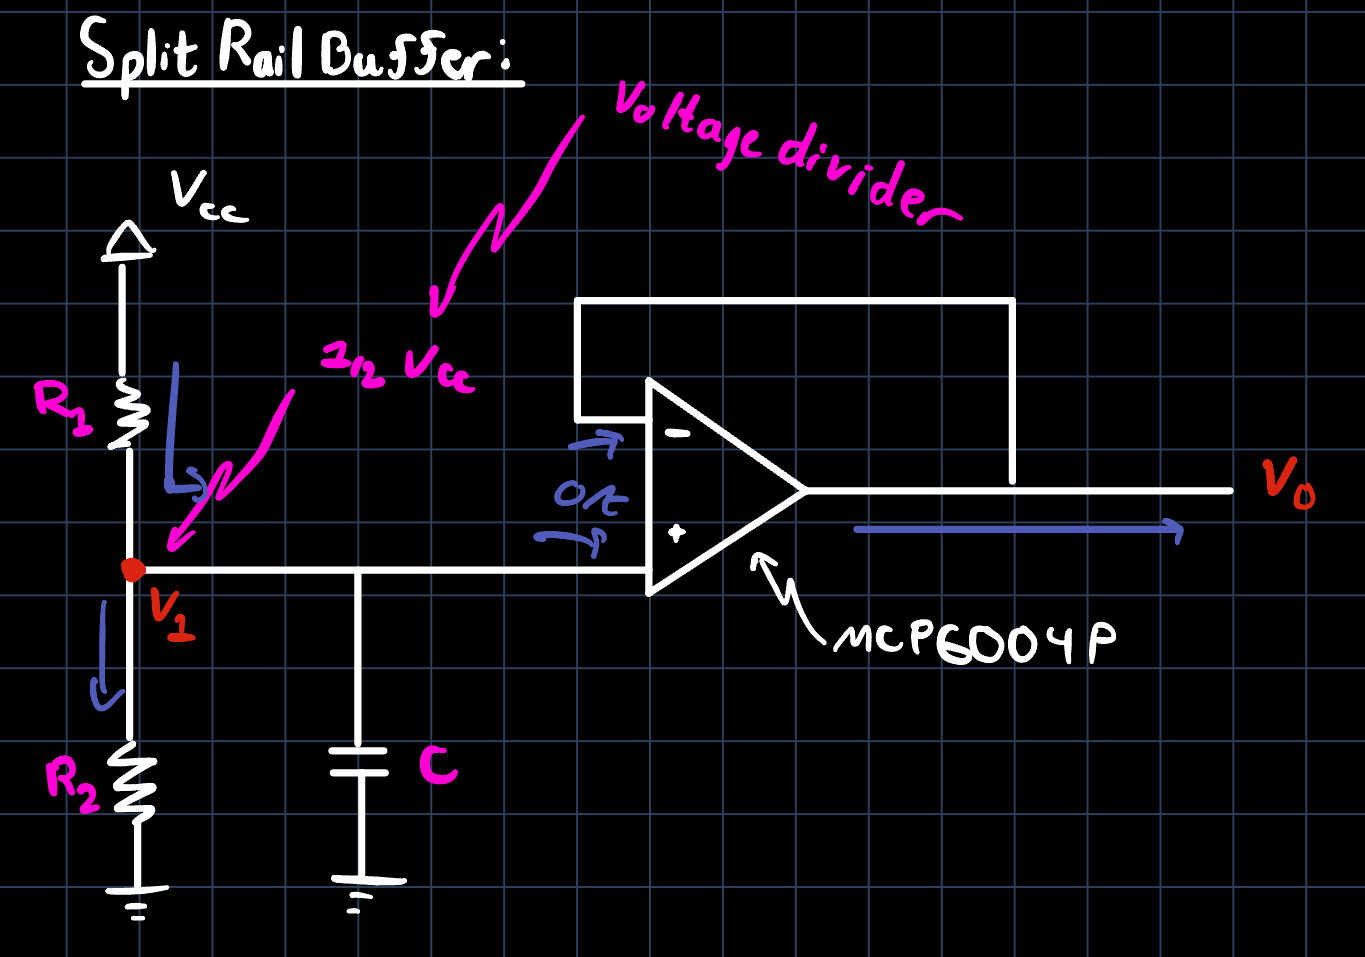 Split Rail Buffer:
Voltage divider
Vcc
1/2 Vcc
R1
-
0A
+
V0
V1
MCP6004P
R2
C